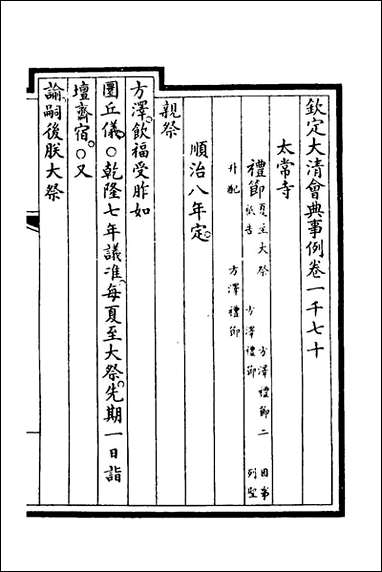 欽定大清會典事例卷一千七十
太常寺
禮節夏至大祭 方澤禮節二 因事
祇告 方澤禮節 列聖
升配 方澤禮節
順治八年定。
親祭
方澤。飲福受胙如
圜丘儀。○乾隆七年議准。每夏至大祭。先期一日詣
壇齋宿。○又
諭。嗣後朕大祭